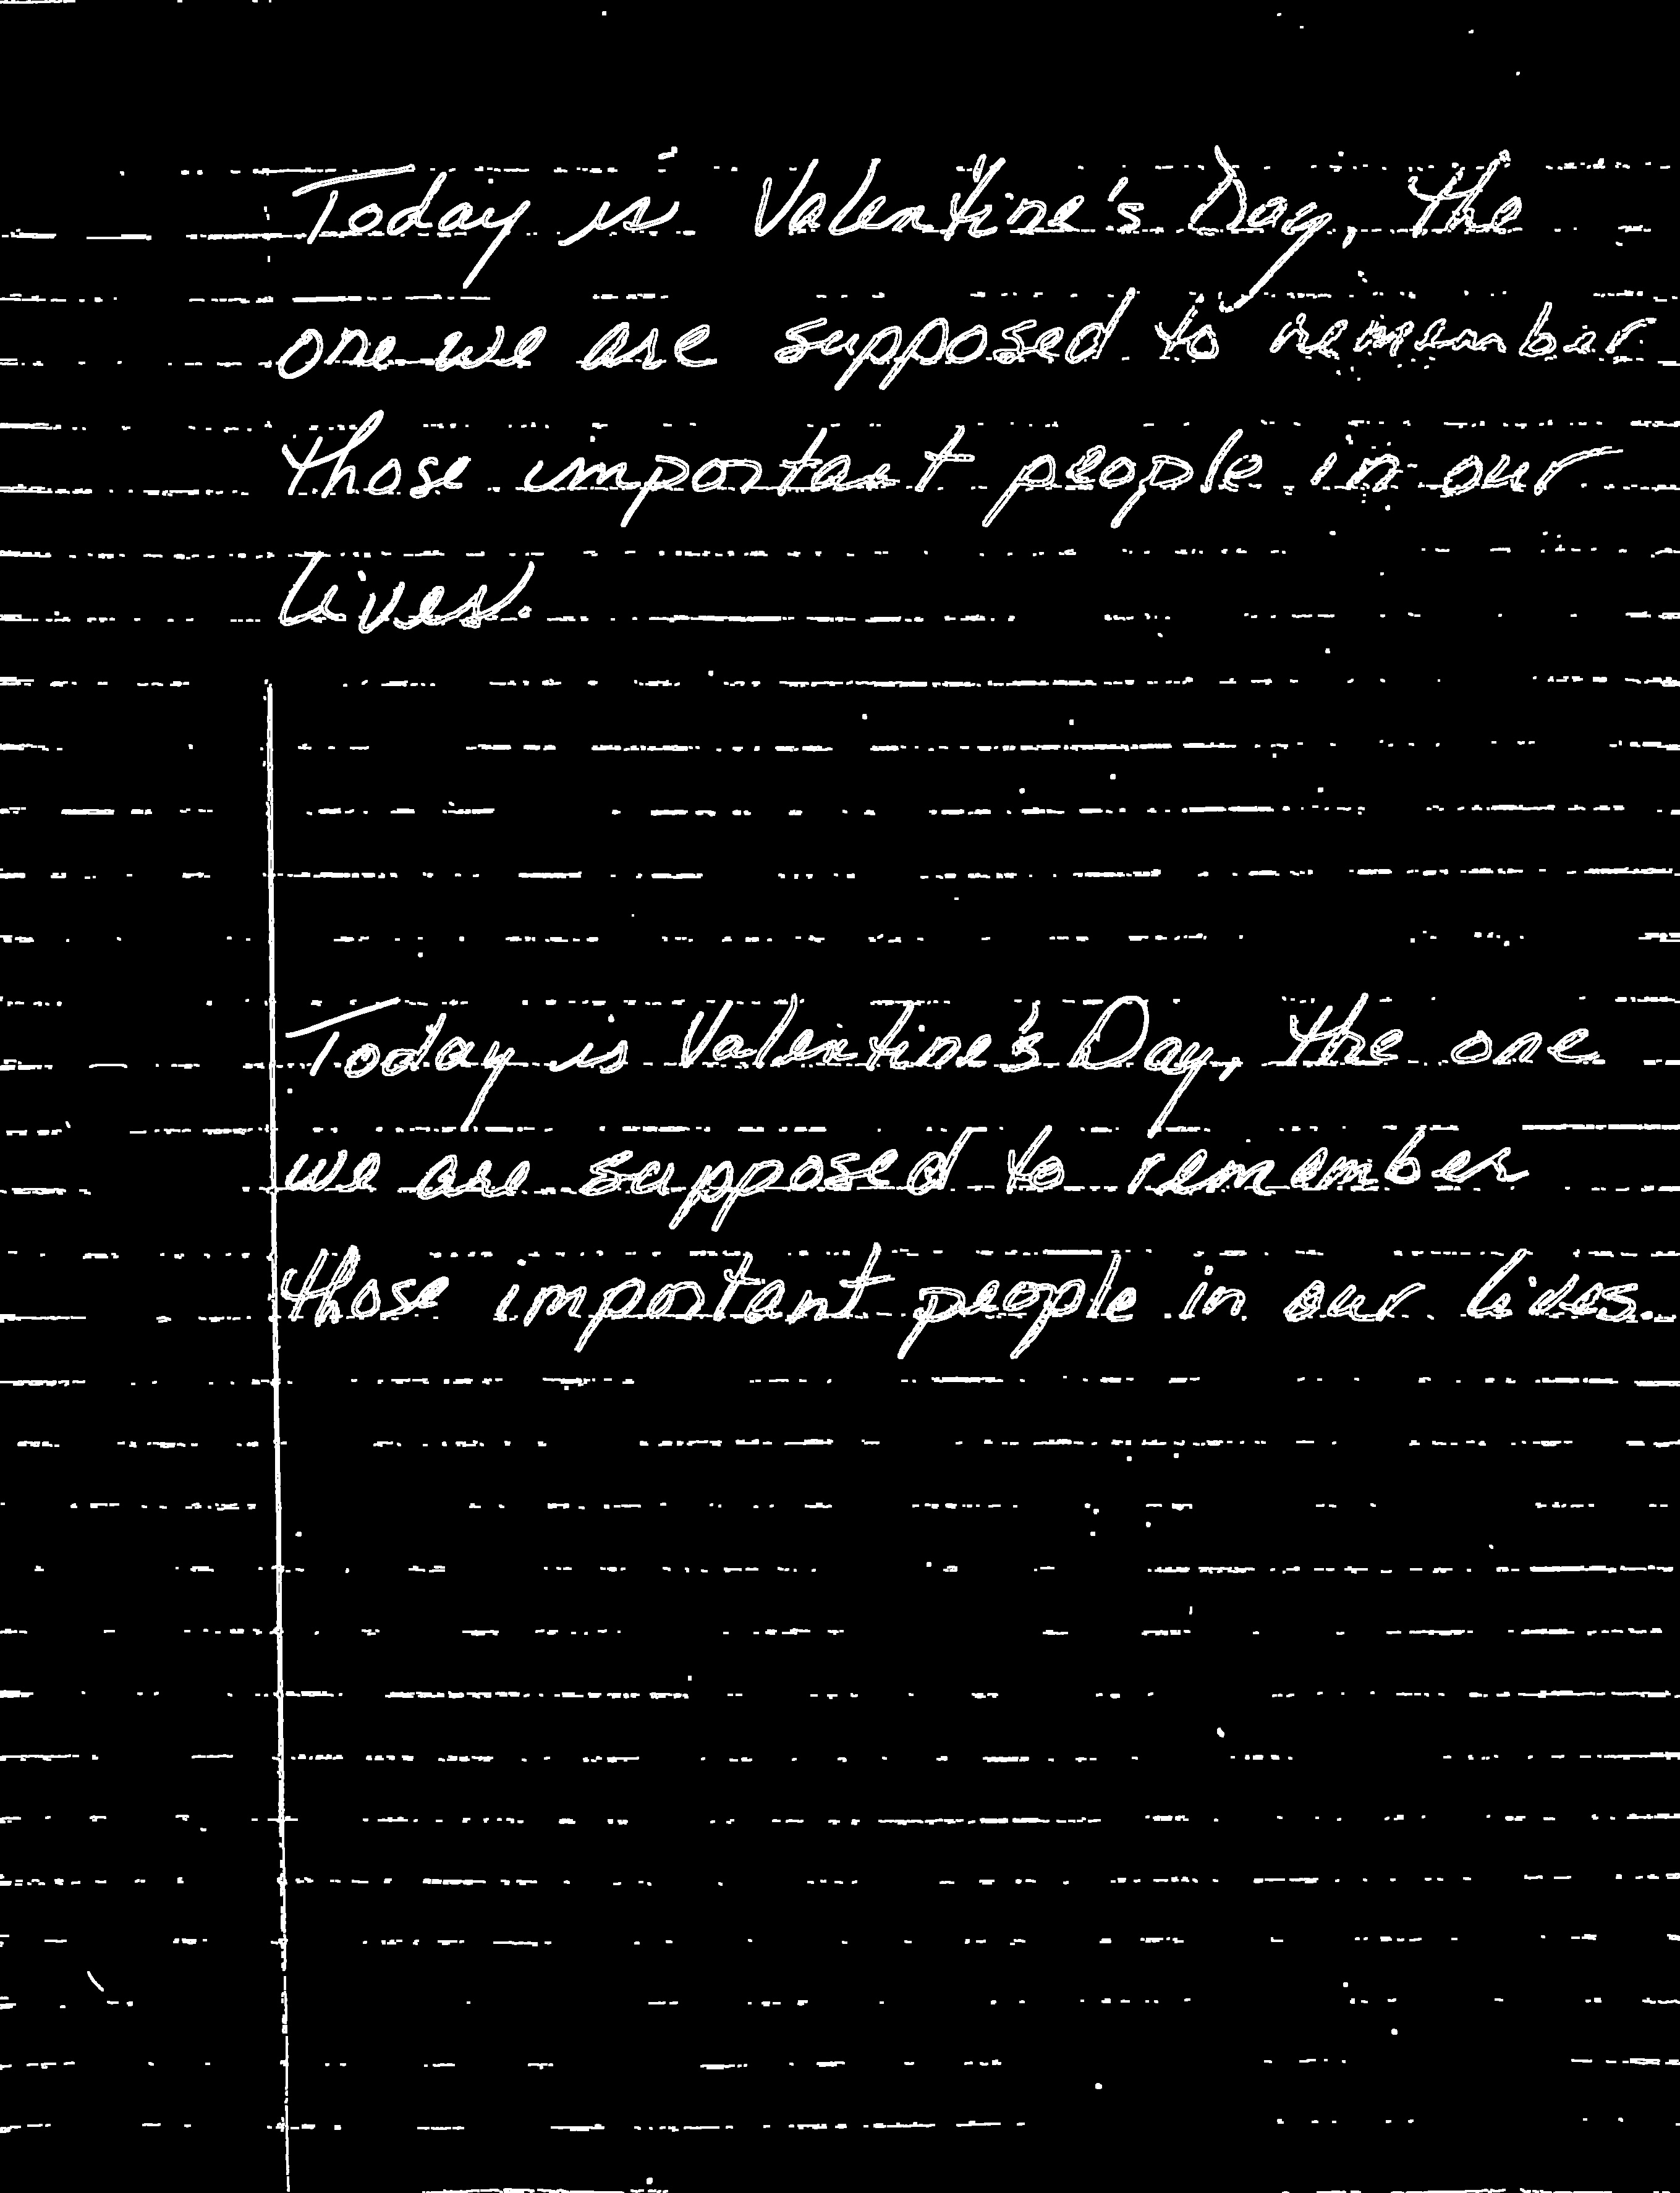 Today is Valentine's Day, the
one we are supposed to remember
those important people in our
lives.
Today is Valentine's Day, the one
we are supposed to remember
those important people in our lives.